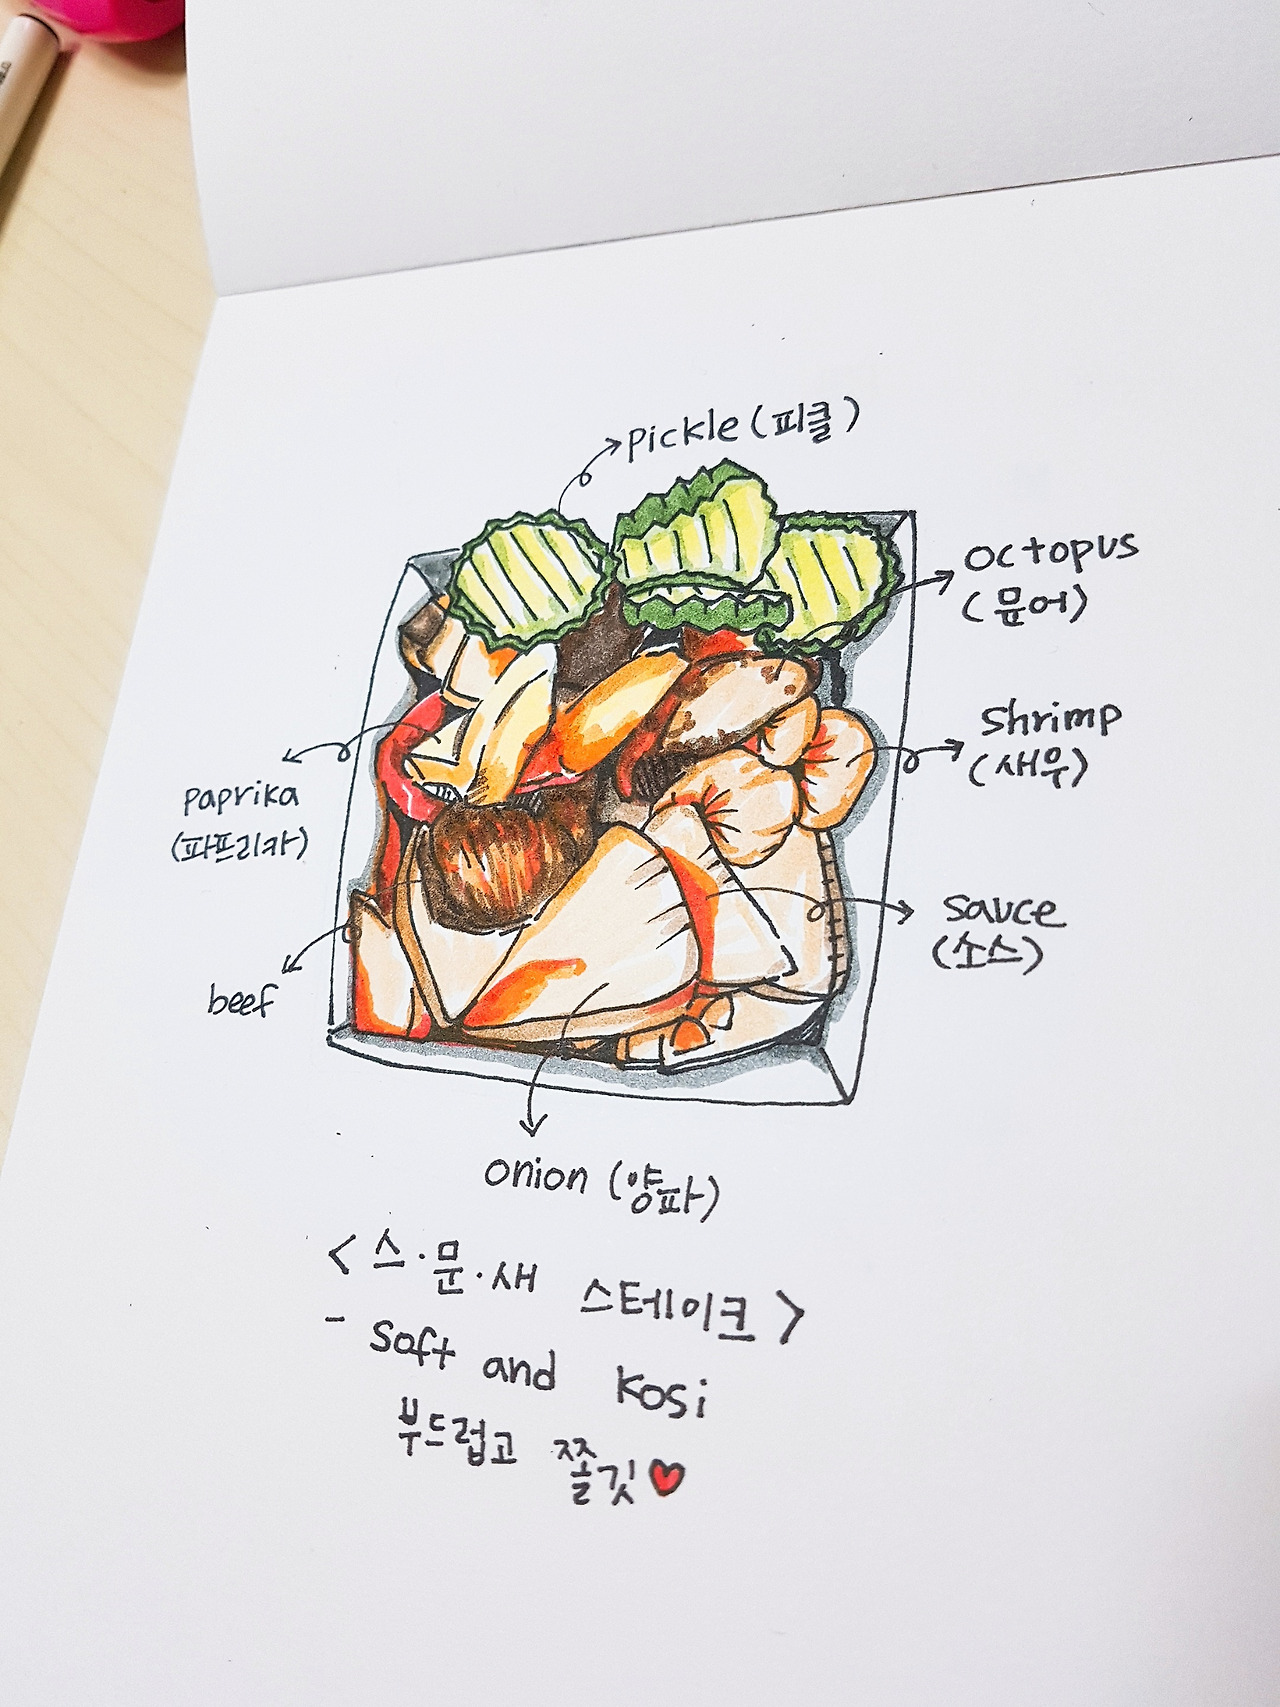 pickle (피클)
octopus
(문어)
shrimp
(새우)
paprika
(파프리카)
sauce
(소스)
beef
onion (양파)
< 스·문·새 스테이크 >
- Soft and kosi
부드럽고 쫄깃♥